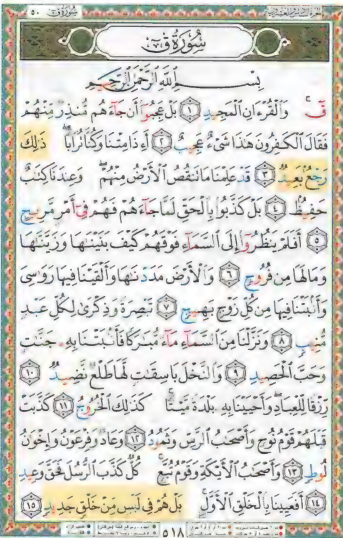 سُورَةُ قٓ ٥٠
سُورَةُ قٓ
بِسْمِ اللَّهِ الرَّحْمَٰنِ الرَّحِيمِ
قٓ ۚ وَالْقُرْءَانِ الْمَجِيدِ ١ بَلْ عَجِبُوٓا أَن جَآءَهُم مُّنذِرٌ مِّنْهُمْ
فَقَالَ الْكَٰفِرُونَ هَٰذَا شَىْءٌ عَجِيبٌ ٢ أَءِذَا مِتْنَا وَكُنَّا تُرَابًا ۖ ذَٰلِكَ
رَجْعٌۢ بَعِيدٌ ٣ قَدْ عَلِمْنَا مَا تَنقُصُ الْأَرْضُ مِنْهُمْ ۖ وَعِندَنَا كِتَٰبٌ
حَفِيظٌۢ ٤ بَلْ كَذَّبُوا بِالْحَقِّ لَمَّا جَآءَهُمْ فَهُمْ فِىٓ أَمْرٍ مَّرِيجٍ
٥ أَفَلَمْ يَنظُرُوٓا إِلَى السَّمَآءِ فَوْقَهُمْ كَيْفَ بَنَيْنَٰهَا وَزَيَّنَّٰهَا
وَمَا لَهَا مِن فُرُوجٍ ٦ وَالْأَرْضَ مَدَدْنَٰهَا وَأَلْقَيْنَا فِيهَا رَوَٰسِىَ
وَأَنۢبَتْنَا فِيهَا مِن كُلِّ زَوْجٍۭ بَهِيجٍ ٧ تَبْصِرَةً وَذِكْرَىٰ لِكُلِّ عَبْدٍ
مُّنِيبٍ ٨ وَنَزَّلْنَا مِنَ السَّمَآءِ مَآءً مُّبَٰرَكًا فَأَنۢبَتْنَا بِهِۦ جَنَّٰتٍ
وَحَبَّ الْحَصِيدِ ٩ وَالنَّخْلَ بَاسِقَٰتٍ لَّهَا طَلْعٌ نَّضِيدٌ ١٠
رِّزْقًا لِّلْعِبَادِ ۖ وَأَحْيَيْنَا بِهِۦ بَلْدَةً مَّيْتًا ۚ كَذَٰلِكَ الْخُرُوجُ ١١ كَذَّبَتْ
قَبْلَهُمْ قَوْمُ نُوحٍ وَأَصْحَٰبُ الرَّسِّ وَثَمُودُ ١٢ وَعَادٌ وَفِرْعَوْنُ وَإِخْوَٰنُ
لُوطٍ ١٣ وَأَصْحَٰبُ الْأَيْكَةِ وَقَوْمُ تُبَّعٍ ۚ كُلٌّ كَذَّبَ الرُّسُلَ فَحَقَّ وَعِيدِ
١٤ أَفَعَيِينَا بِالْخَلْقِ الْأَوَّلِ ۚ بَلْ هُمْ فِى لَبْسٍ مِّنْ خَلْقٍ جَدِيدٍ ١٥
٥١٨